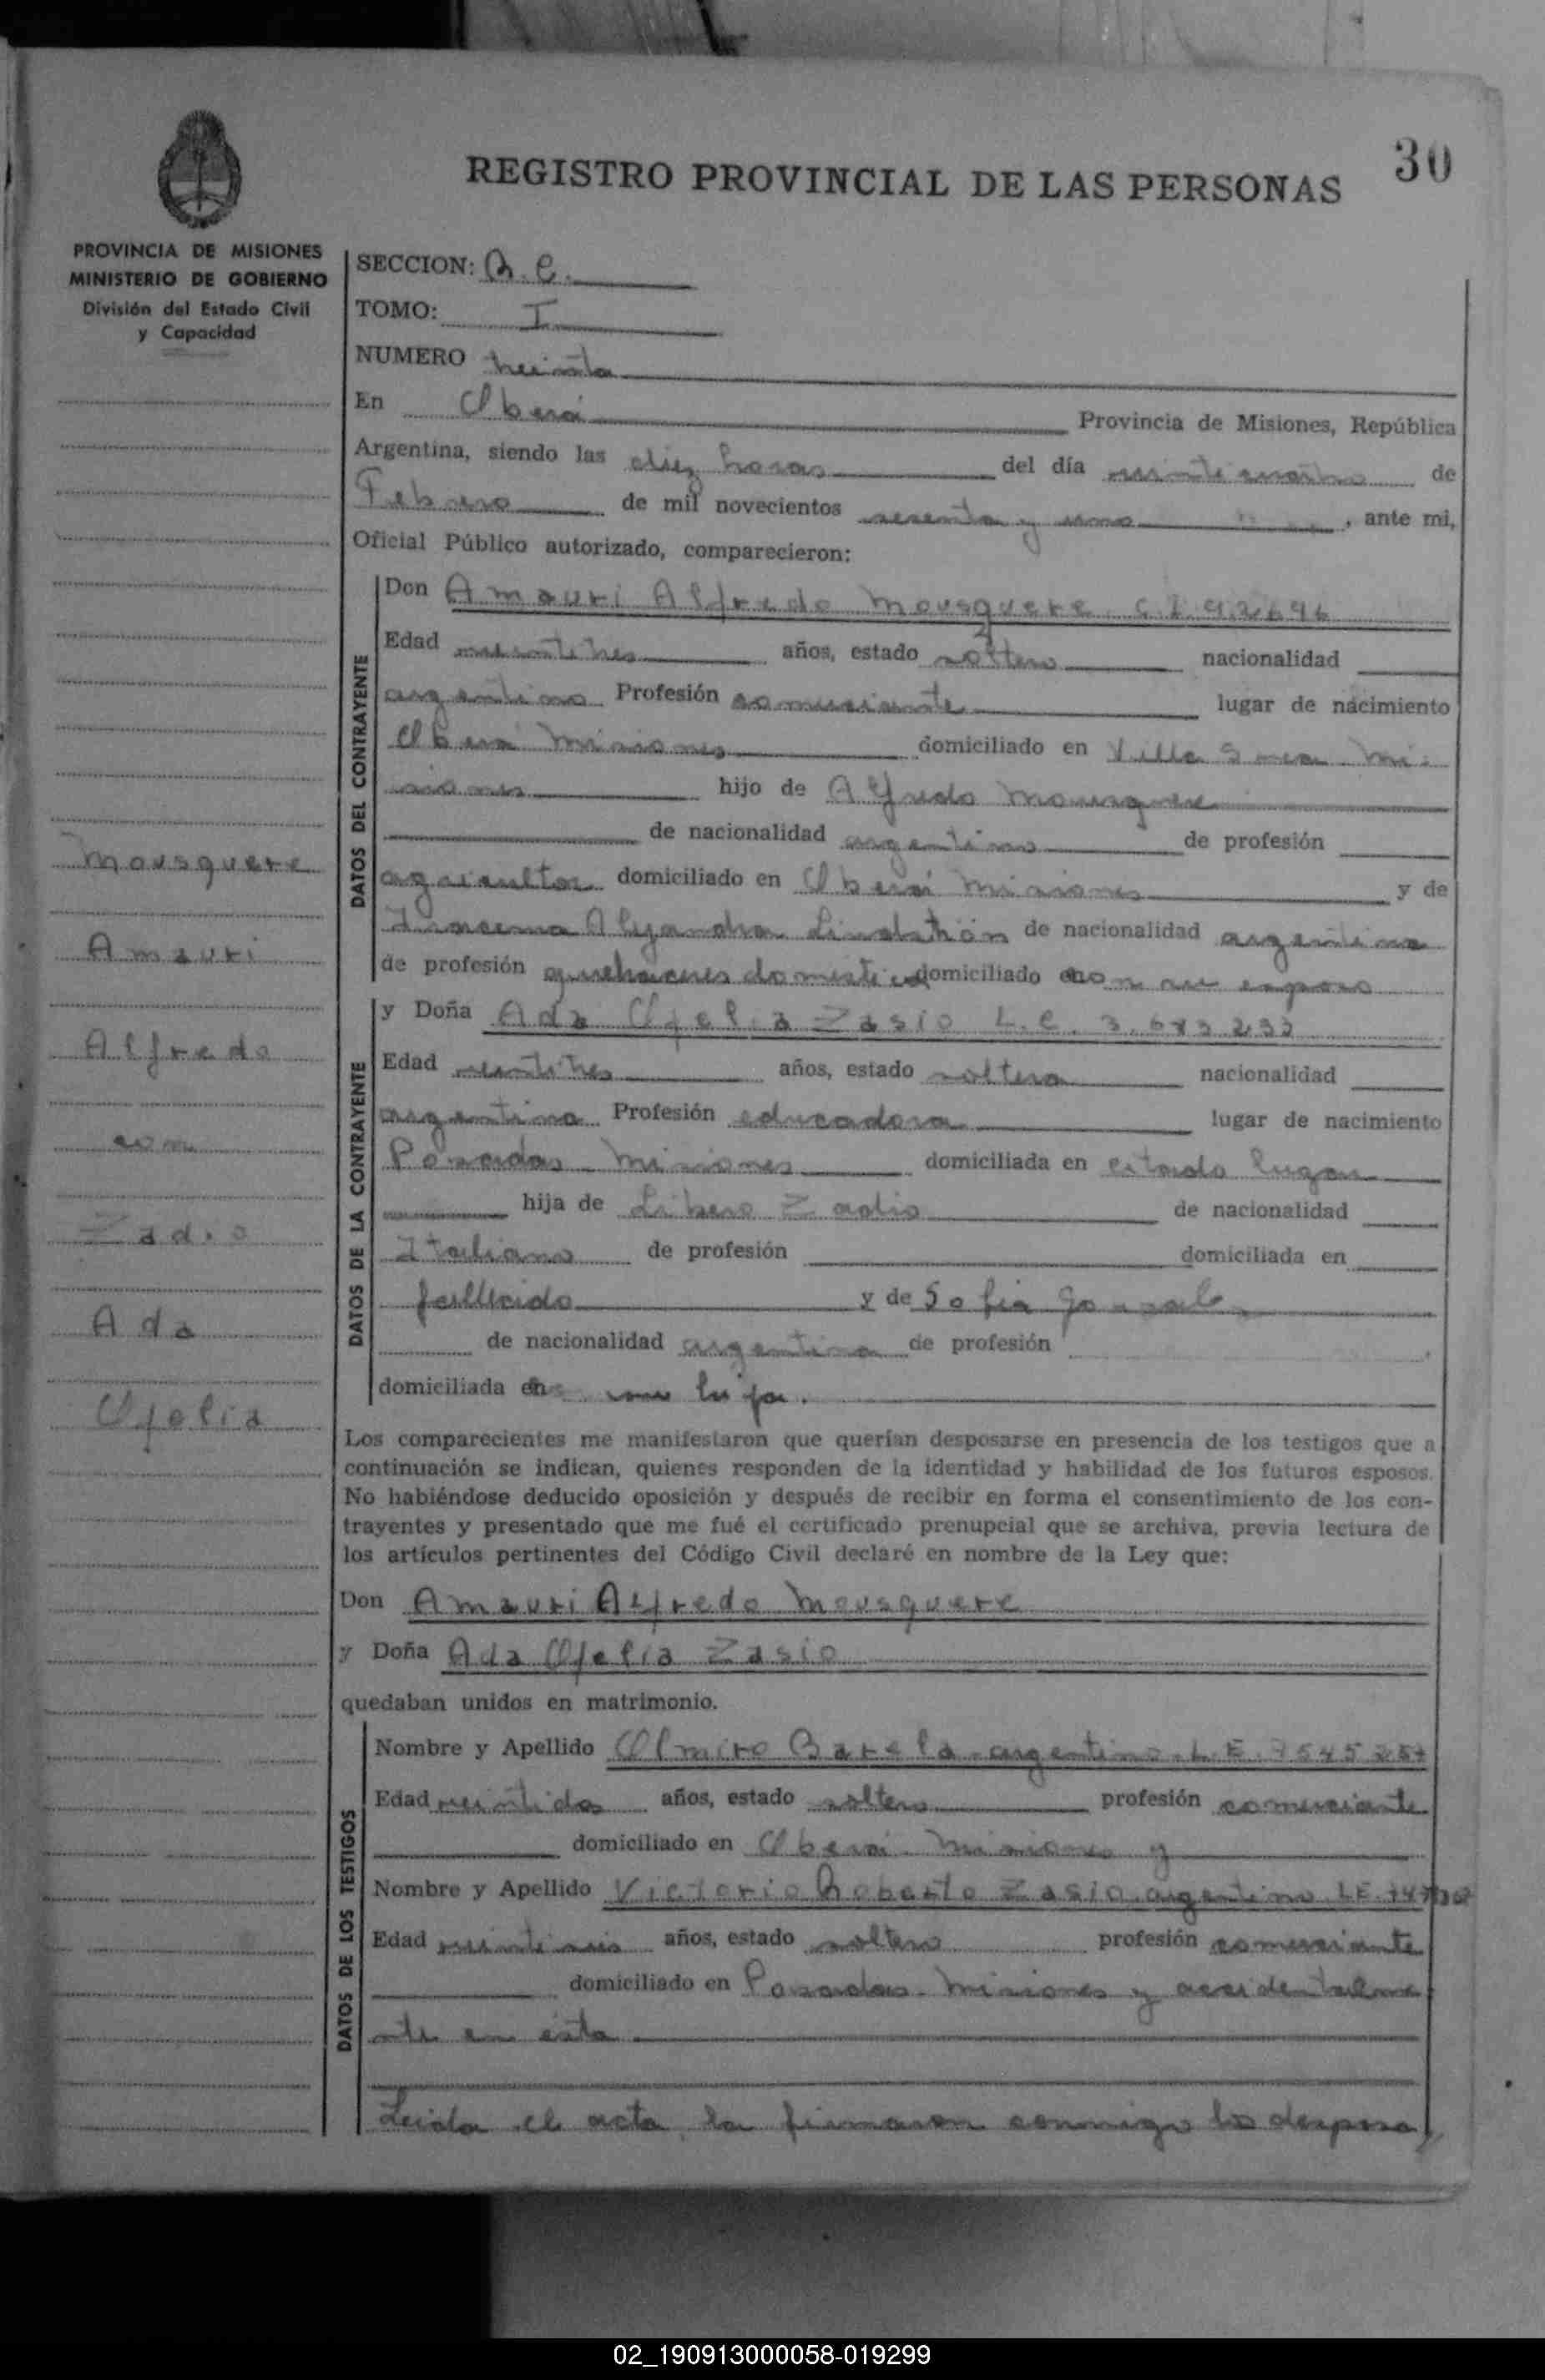 30
REGISTRO PROVINCIAL DE LAS PERSONAS
PROVINCIA DE MISIONES
MINISTERIO DE GOBIERNO
División del Estado Civil
y Capacidad
Mousquere
Amauri
Alfredo
con
Zadio
Ada
Ofelia
SECCION: R. C.
TOMO: I
NUMERO treinta
En Oberá Provincia de Misiones, República
Argentina, siendo las diez horas del día veinticuatro de
Febrero de mil novecientos sesenta y uno, ante mi,
Oficial Público autorizado, comparecieron:
DATOS DEL CONTRAYENTE
Don Amauri Alfredo Mousquere C.I. 92696
Edad veintitres años, estado soltero nacionalidad
argentino Profesión comerciante lugar de nacimiento
Oberá Misiones domiciliado en Villa Mi-
siones hijo de Alfredo Mousquere
de nacionalidad argentino de profesión
agricultor domiciliado en Oberá Misiones y de
Alejandra de nacionalidad argentina
de profesión quehaceres domesticos domiciliado con su esposo
DATOS DE LA CONTRAYENTE
y Doña Ada Ofelia Zasio L.C. 3.683.233
Edad veintitres años, estado soltera nacionalidad
argentina Profesión educadora lugar de nacimiento
Posadas Misiones domiciliada en citado lugar
hija de Libero Zadio de nacionalidad
Italiano de profesión domiciliada en
fallecido y de Sofia
de nacionalidad argentina de profesión
domiciliada en con su hija.
Los comparecientes me manifestaron que querían desposarse en presencia de los testigos que a
continuación se indican, quienes responden de la identidad y habilidad de los futuros esposos.
No habiéndose deducido oposición y después de recibir en forma el consentimiento de los con-
trayentes y presentado que me fué el certificado prenupcial que se archiva, previa lectura de
los artículos pertinentes del Código Civil declaré en nombre de la Ley que:
Don Amauri Alfredo Mousquere
y Doña Ada Ofelia Zasio
quedaban unidos en matrimonio.
DATOS DE LOS TESTIGOS
Nombre y Apellido Olmiro Barela argentino L.E.
Edad veintidos años, estado soltero profesión comerciante
domiciliado en Oberá Misiones y
Nombre y Apellido Victorio Roberto Zasio argentino LE.
Edad veintiseis años, estado soltero profesión comerciante
domiciliado en Posadas Misiones y accidentalme
nte en esta
Leida el acta, la firmaron conmigo los desposa
02_190913000058-019299